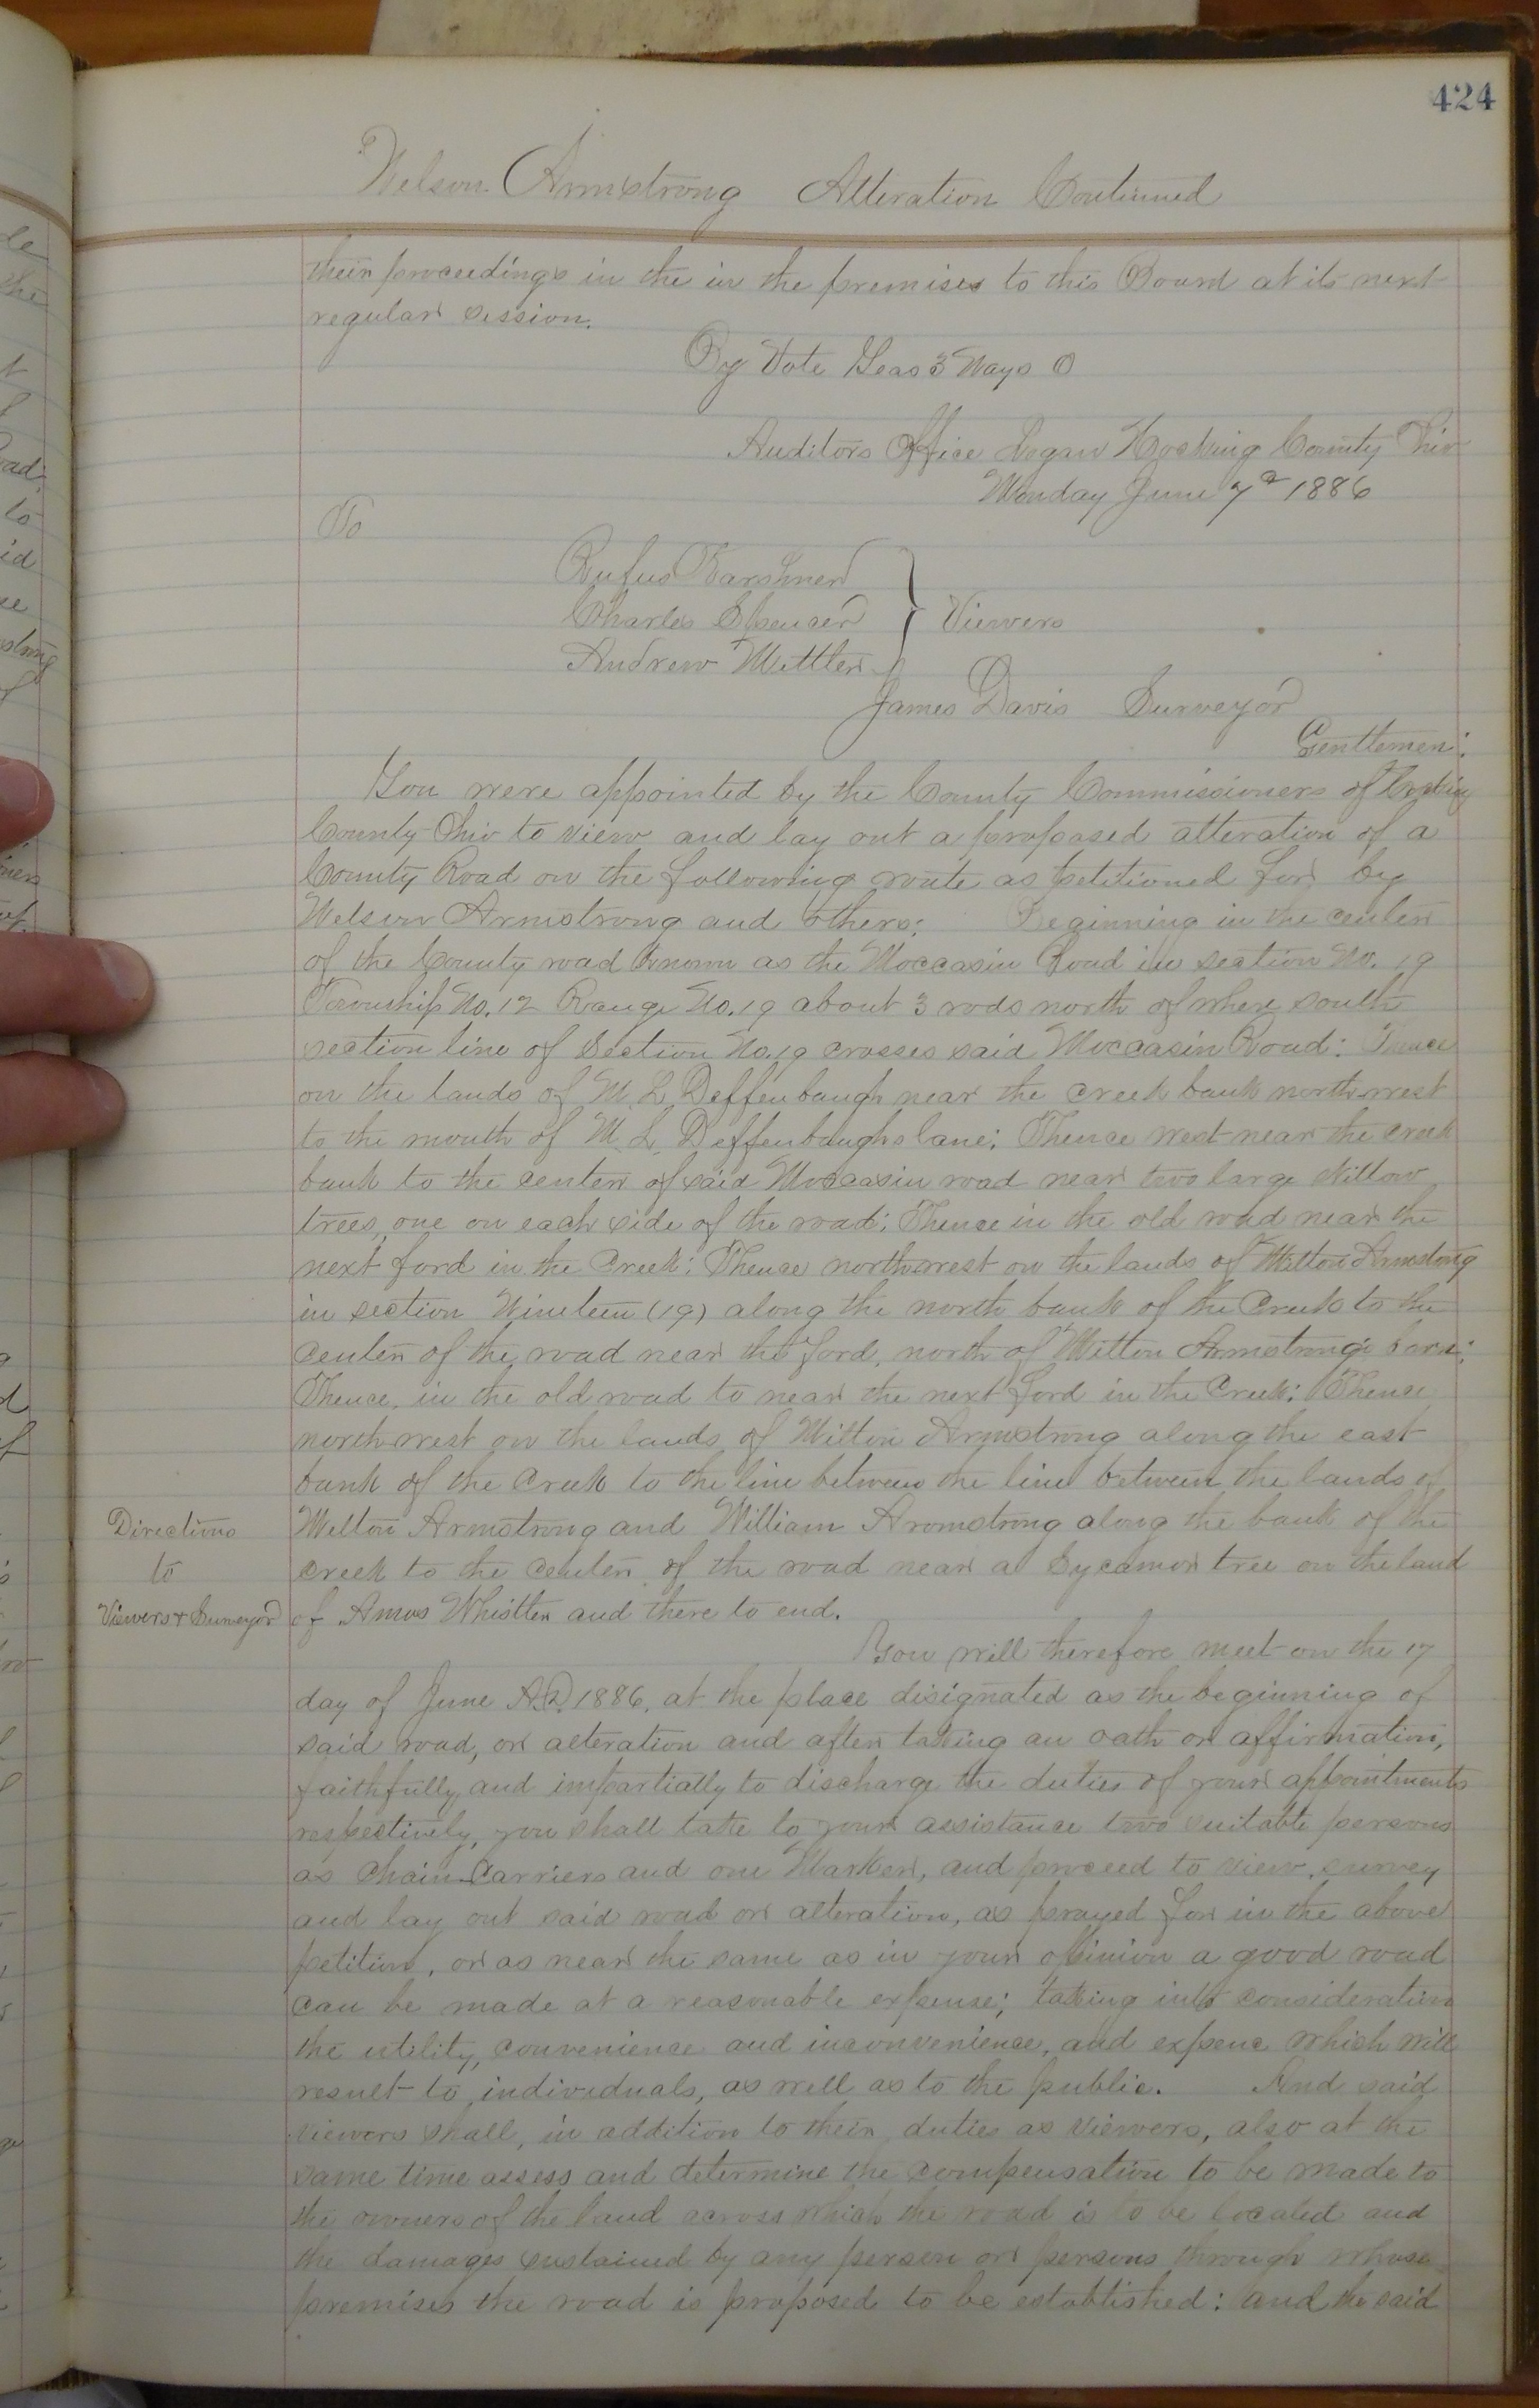 424
Nelson Armstrong Alteration Continued
their proceedings in the in the premises to this Board at its next
regular session.
By Vote Yeas 3 Nays 0
Auditors Office Logan Hocking County Ohio
Monday June 7th 1886
To
Rufus Karshner
Charles Spencer } Viewers
Andrew Mettler
James Davis Surveyor
Gentlemen:
You were appointed by the County Commissioners of Hocking
County Ohio to view and lay out a proposed alteration of a
County Road on the following route as petitioned for by
Nelson Armstrong and others: Beginning in the center
of the County road known as the Moccasin Road in section No. 19
Township No. 12 Range No. 19 about 3 rods north of where south
section line of Section No. 19 crosses said Moccasin Road: Thence
on the lands of M. L. Deffenbaugh near the creek bank northwest
to the mouth of M. L. Deffenbaughs lane: Thence west near the creek
bank to the center of said Moccasin road near two large Willow
trees, one on each side of the road: Thence in the old road near the
next ford in the Creek: Thence northwest on the lands of Milton Armstrong
in section Nineteen (19) along the north bank of the Creek to the
center of the road near the ford, north of Milton Armstrongs barn:
Thence, in the old road to near the next ford in the Creek: Thence
northwest on the lands of Milton Armstrong along the east
bank of the Creek to the line between the line between the lands of
Directions
to
Viewers & Surveyor
Melton Armstrong and William Aromstrong along the bank of the
creek to the center of the road near a Sycamor tree on the land
of Amos Whistler and there to end.
You will therefore meet on the 17
day of June A.D. 1886, at the place disignated as the beginning of
said road, or alteration and after taking an oath or affirmation,
faithfully and impartially to discharge the duties of your appointments
respectively, you shall take to your assistance two suitable persons
as Chain Carriers and one Marker, and proceed to view, survey
and lay out said road or alteration, as prayed for in the above
petition, or as near the same as in your opinion a good road
can be made at a reasonable expense; taking into consideration
the utility, convenience and inconvenience, and expene which will
result to individuals, as well as to the public. And said
viewers shall, in addition to their duties as viewers, also at the
same time assess and determine the compensation to be made to
the owners of the land across which the road is to be located and
the damages sustained by any person or persons through whose
premises the road is proposed to be established: and the said